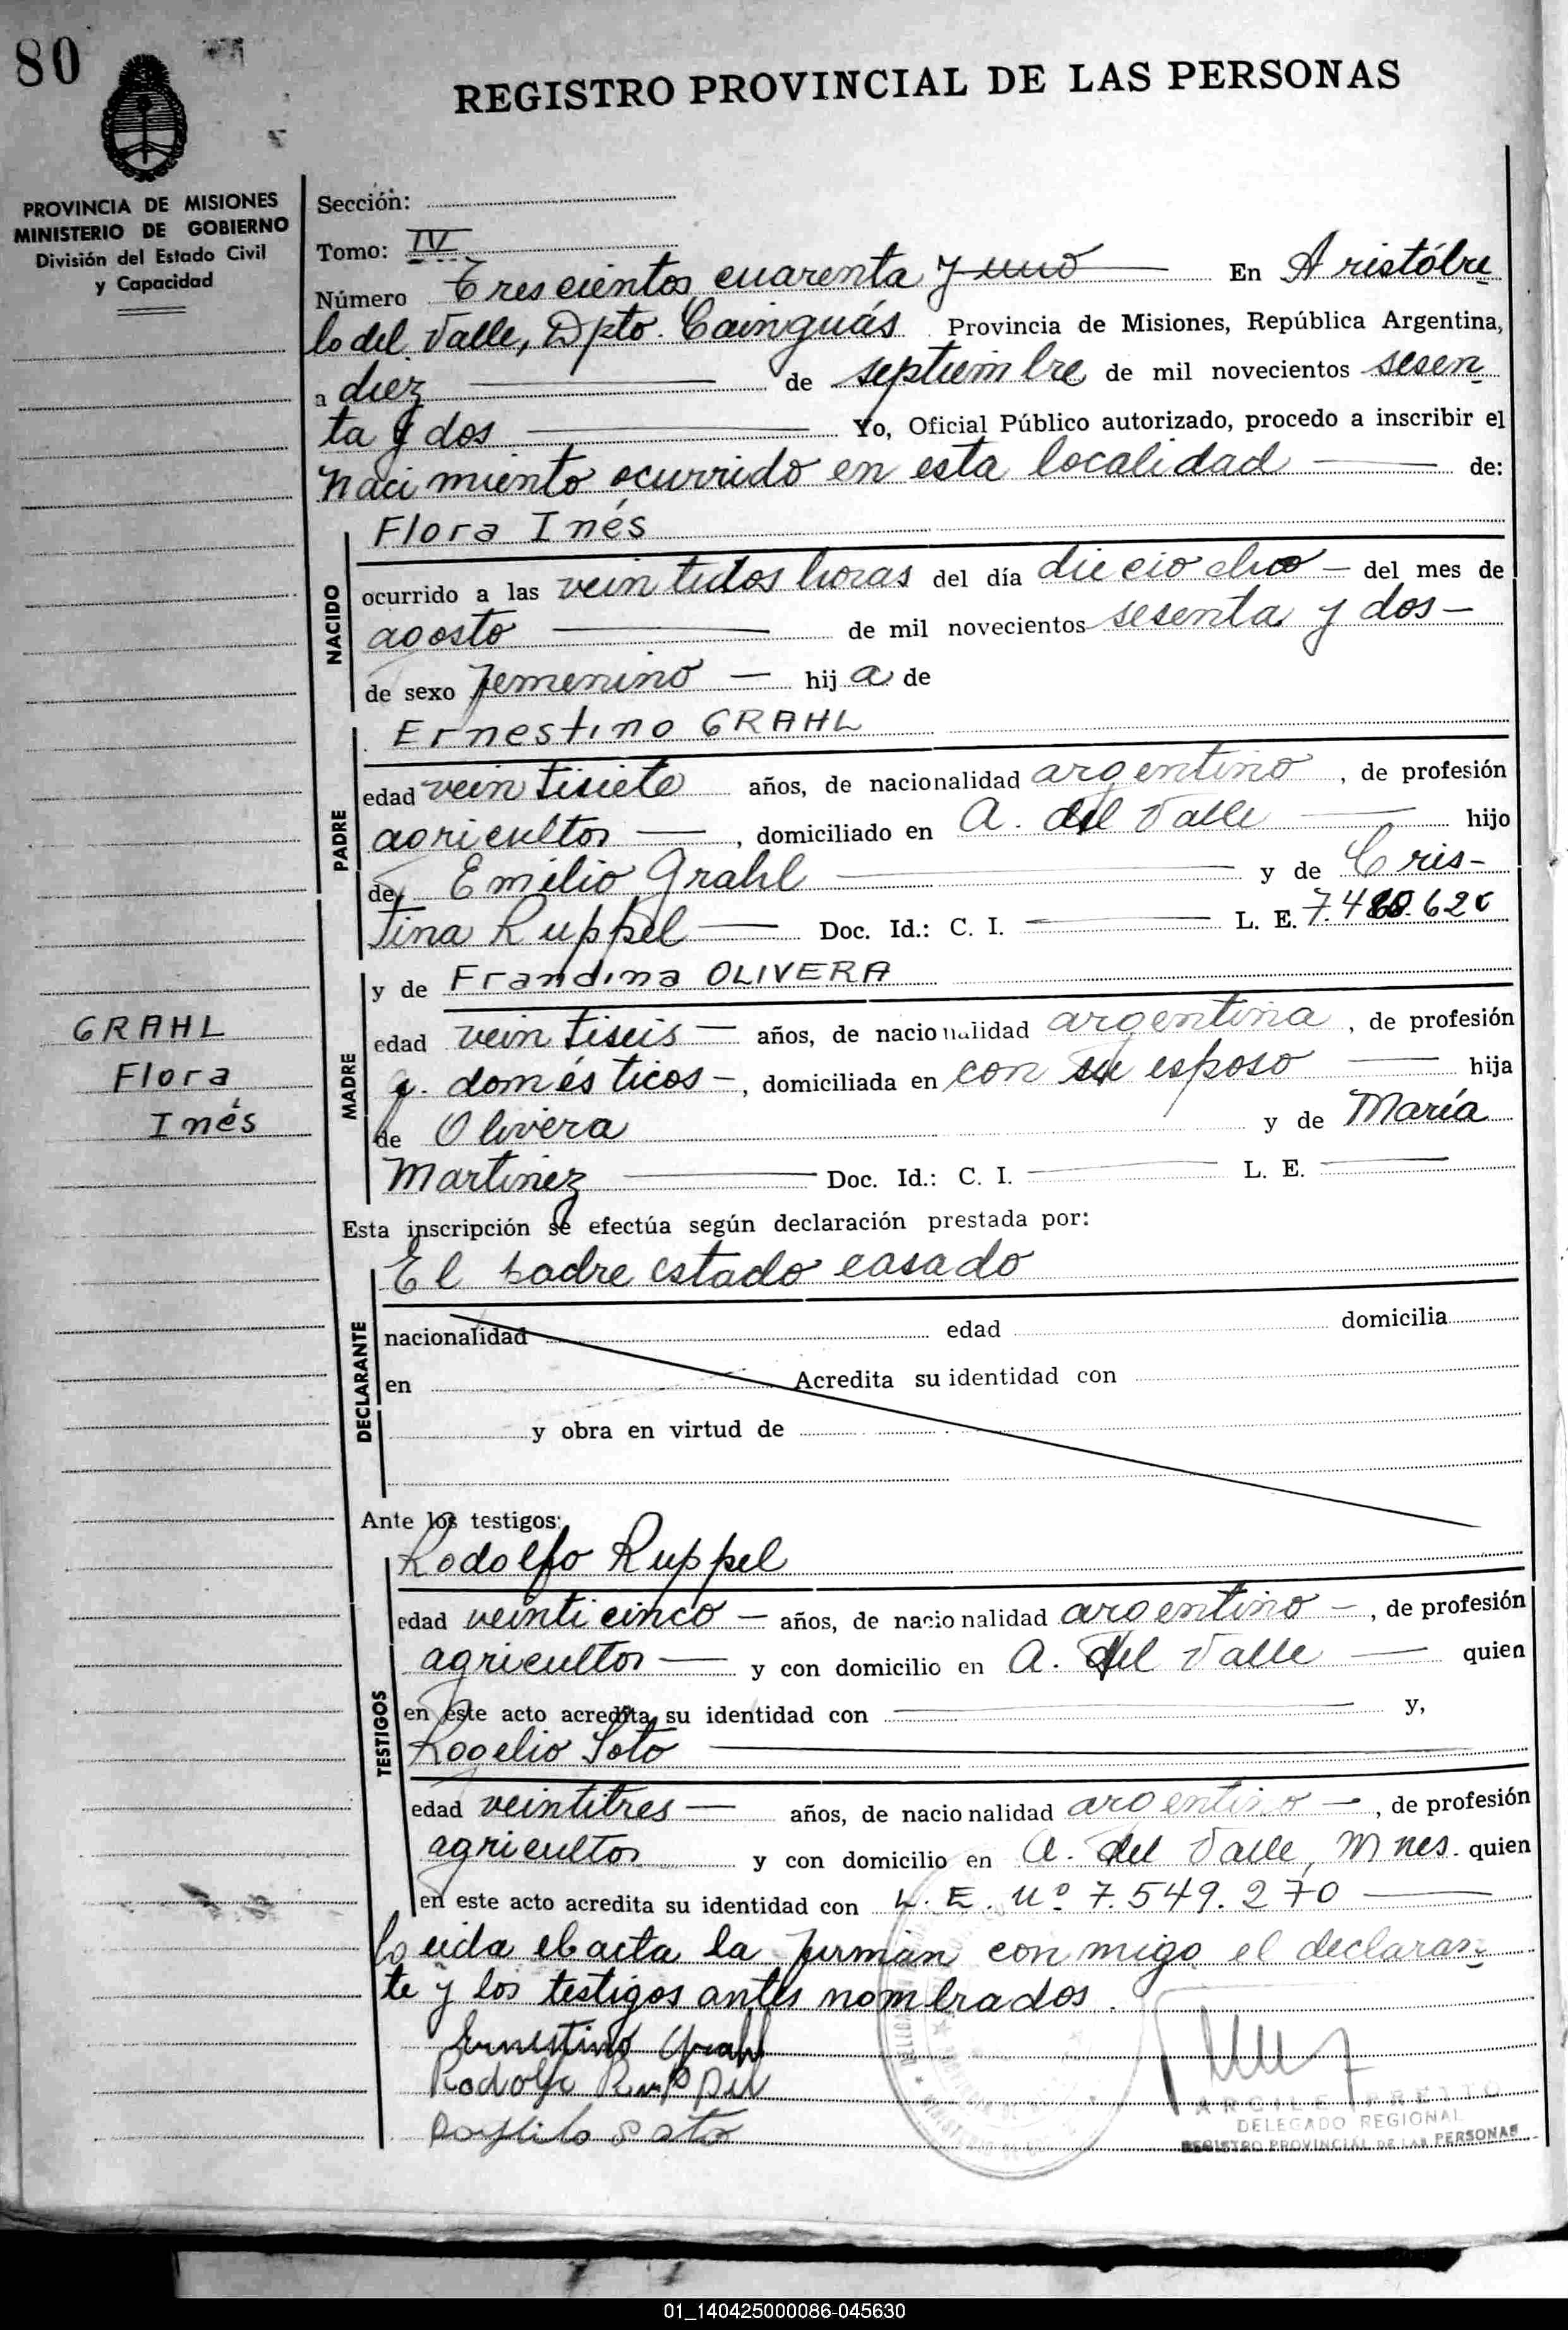 80
REGISTRO PROVINCIAL DE LAS PERSONAS
PROVINCIA DE MISIONES
MINISTERIO DE GOBIERNO
División del Estado Civil
y Capacidad
Sección:
Tomo: IV
Número Trescientos cuarenta y uno En Aristóbu
lo del Valle, Dpto. Cainguás Provincia de Misiones, República Argentina,
a diez de septiembre de mil novecientos sesen
ta y dos Yo, Oficial Público autorizado, procedo a inscribir el
nacimiento ocurrido en esta localidad de:
NACIDO
Flora Inés
ocurrido a las veintidos horas del día dieciocho del mes de
agosto de mil novecientos sesenta y dos
de sexo femenino hija de
PADRE
Ernestino GRAHL
edad veintisiete años, de nacionalidad argentino, de profesión
agricultor, domiciliado en A. del Valle hijo
de Emilio Grahl y de Cris-
tina Ruppel Doc. Id.: C. I. L. E.
MADRE
y de Frandina OLIVERA
edad veintiseis años, de nacionalidad argentina, de profesión
q. domésticos, domiciliada en con su esposo hija
de Olivera y de María
Martinez Doc. Id.: C. I. L. E.
GRAHL
Flora
Inés
Esta inscripción se efectúa según declaración prestada por:
DECLARANTE
El padre estado casado
nacionalidad edad domicilia
en Acredita su identidad con
y obra en virtud de
Ante los testigos:
TESTIGOS
Rodolfo Ruppel
edad veinticinco años, de nacionalidad argentino, de profesión
agricultor y con domicilio en A. del Valle quien
en este acto acredita su identidad con y,
Rogelio Soto
edad veintitres años, de nacionalidad argentino, de profesión
agricultor y con domicilio en A. del Valle, Mnes. quien
en este acto acredita su identidad con L. E. Nº 7.549.270
Leida el acta la firman conmigo el declaran-
te y los testigos antes nombrados.
Ernestino Grahl
Rodolfo Ruppel
Rogelio Soto
DELEGADO REGIONAL
REGISTRO PROVINCIAL DE LAS PERSONAS
01_140425000086-045630